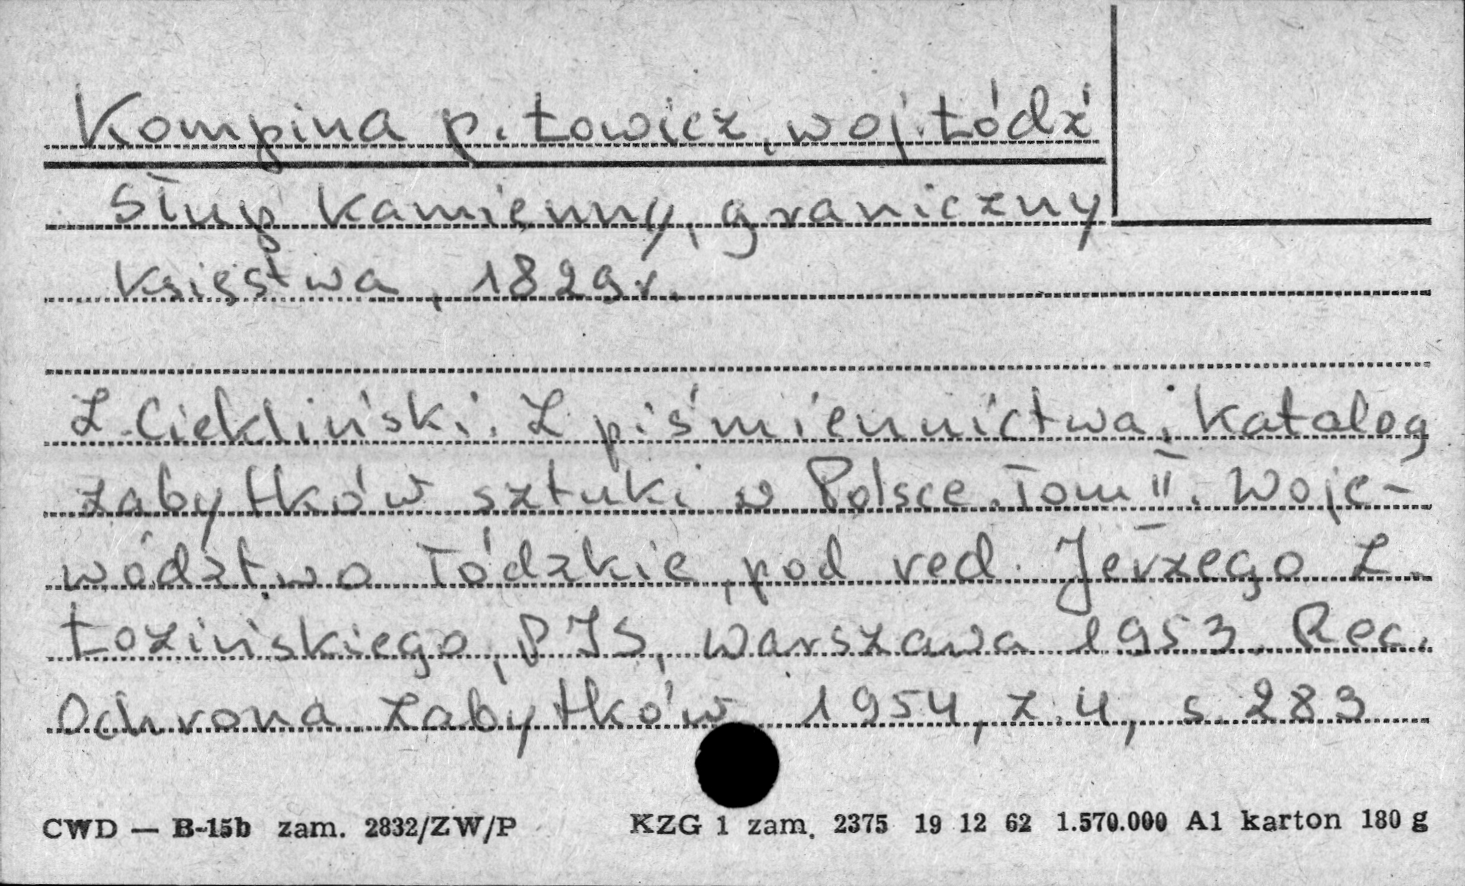 Kompina p. Łowicz, woj. Łódź
Słup kamienny, graniczny
Księstwa, 1829 r.
Z. Ciekliński. Z piśmiennictwa; Katalog
zabytków sztuki w Polsce. Tom II. Woje-
wództwo łódzkie, pod red. Jerzego Z.
Łozińskiego, PIS, Warszawa 1953. Rec.
Ochrona Zabytków 1954, z. 4, s. 283
CWD — B-15b zam. 2832/ZW/P KZG 1 zam. 2375 19 12 62 1.570.000 A1 karton 180 g